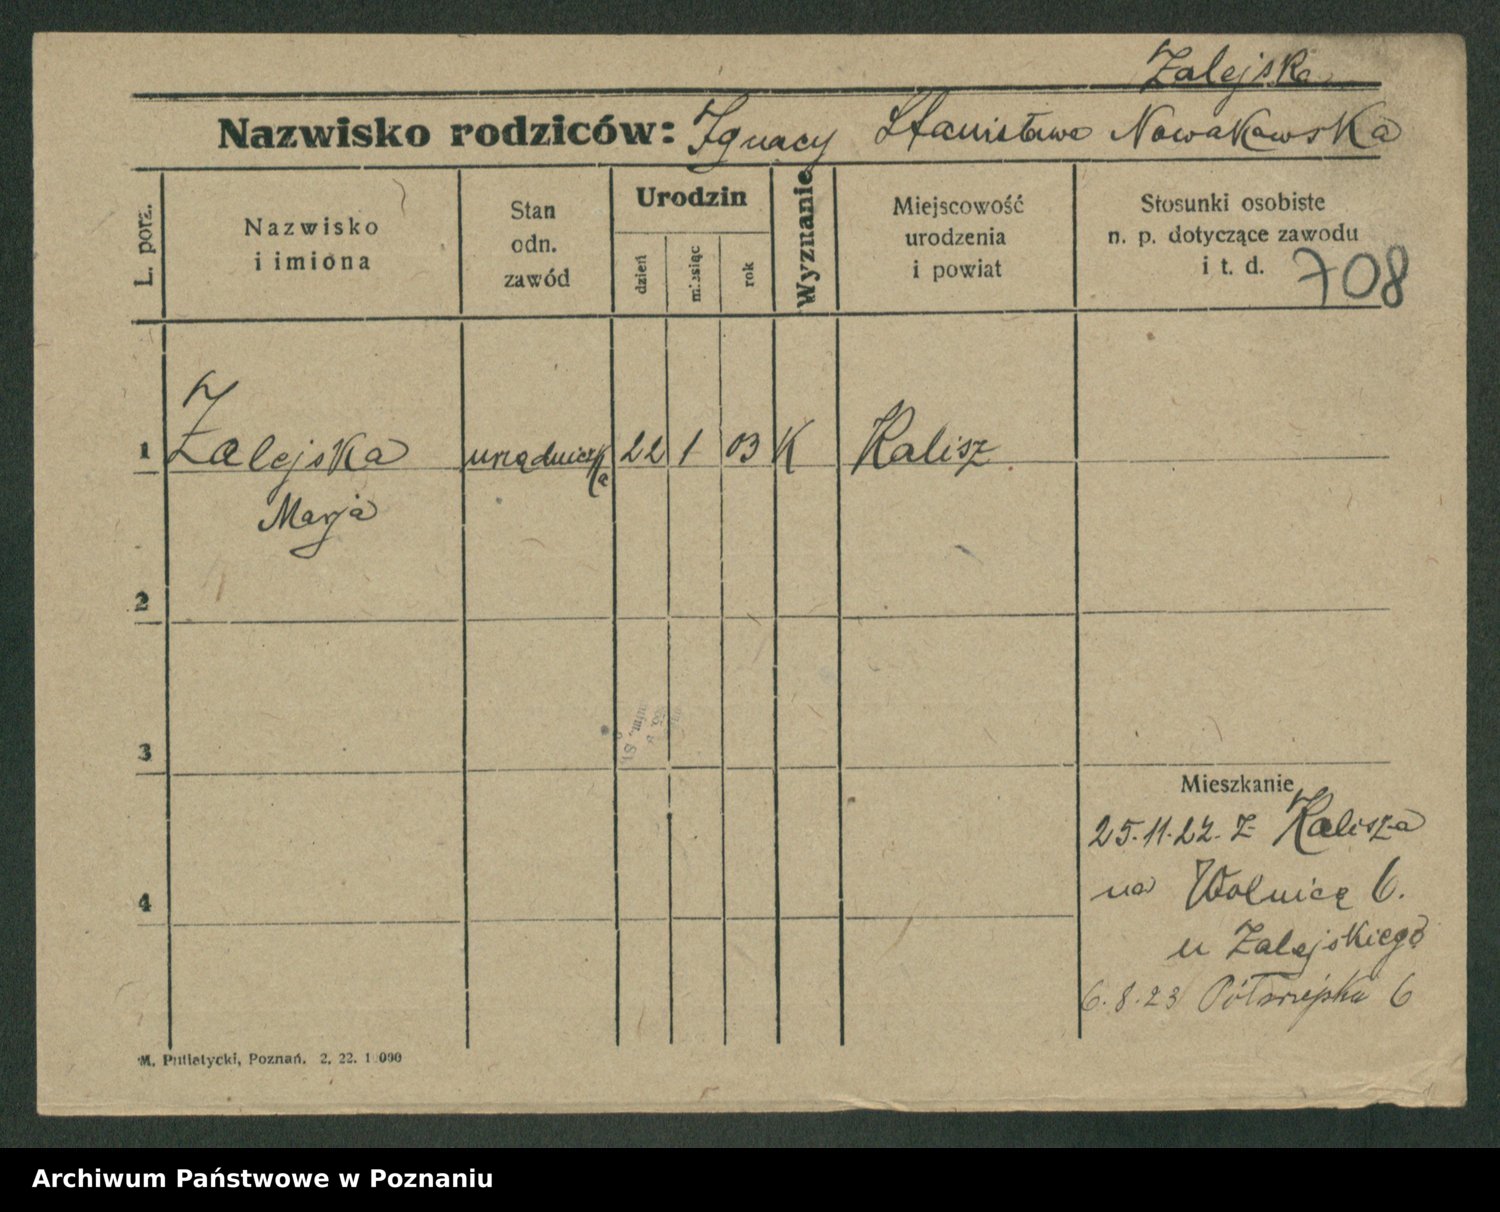 Zalejska
Nazwisko rodziców: Ignacy Stanisława Nowakowska
L. porz.
Nazwisko
i imiona
Stan
odn.
zawód
Urodzin
dzień
miesiąc
rok
Wyznanie
Miejscowość
urodzenia
i powiat
Stosunki osobiste
n. p. dotyczące zawodu
i t. d.
708
1 Zalejska urzędniczka 22 1 03 K Kalisz
Marja
2
3
Mieszkanie
25.11.22. z Kalisza
na Wolnicę 6.
4
u Zalejskiego
6.8.23 Półwiejska 6
M. Putiatycki, Poznań. 2. 22. 1 000
Archiwum Państwowe w Poznaniu